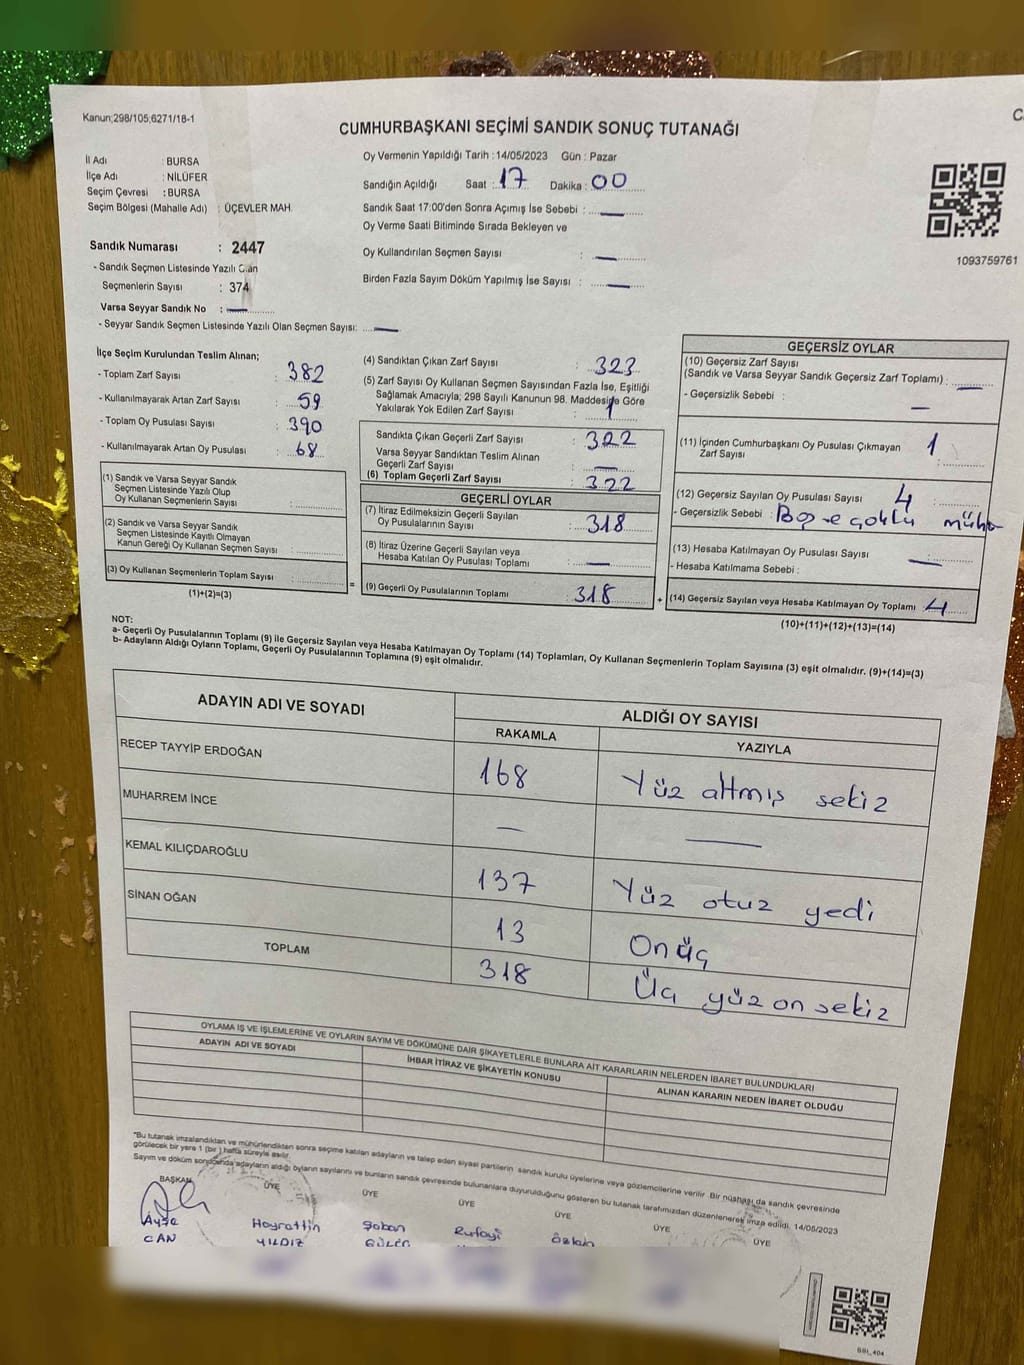 Kanun;298/105;6271/18-1
CUMHURBAŞKANI SEÇİMİ SANDIK SONUÇ TUTANAĞI
İl Adı : BURSA
İlçe Adı : NİLÜFER
Seçim Çevresi : BURSA
Seçim Bölgesi (Mahalle Adı) : ÜÇEVLER MAH.
Sandık Numarası : 2447
- Sandık Seçmen Listesinde Yazılı Olan
Seçmenlerin Sayısı : 374
Varsa Seyyar Sandık No : —
- Seyyar Sandık Seçmen Listesinde Yazılı Olan Seçmen Sayısı: —
Oy Vermenin Yapıldığı Tarih : 14/05/2023 Gün : Pazar
Sandığın Açıldığı Saat : 17 Dakika : 00
Sandık Saat 17:00'den Sonra Açımış İse Sebebi : —
Oy Verme Saati Bitiminde Sırada Bekleyen ve
Oy Kullandırılan Seçmen Sayısı : —
Birden Fazla Sayım Döküm Yapılmış İse Sayısı : —
1093759761
İlçe Seçim Kurulundan Teslim Alınan;
- Toplam Zarf Sayısı : 382
- Kullanılmayarak Artan Zarf Sayısı : 59
- Toplam Oy Pusulası Sayısı : 390
- Kullanılmayarak Artan Oy Pusulası : 68
(1) Sandık ve Varsa Seyyar Sandık
Seçmen Listesinde Yazılı Olup
Oy Kullanan Seçmenlerin Sayısı :
(2) Sandık ve Varsa Seyyar Sandık
Seçmen Listesinde Kayıtlı Olmayan
Kanun Gereği Oy Kullanan Seçmen Sayısı :
(3) Oy Kullanan Seçmenlerin Toplam Sayısı :
(1)+(2)=(3)
(4) Sandıktan Çıkan Zarf Sayısı : 323
(5) Zarf Sayısı Oy Kullanan Seçmen Sayısından Fazla İse, Eşitliği
Sağlamak Amacıyla; 298 Sayılı Kanunun 98. Maddesine Göre
Yakılarak Yok Edilen Zarf Sayısı : 1
Sandıkta Çıkan Geçerli Zarf Sayısı : 322
Varsa Seyyar Sandıktan Teslim Alınan
Geçerli Zarf Sayısı : —
(6) Toplam Geçerli Zarf Sayısı : 322
GEÇERLİ OYLAR
(7) İtiraz Edilmeksizin Geçerli Sayılan
Oy Pusulalarının Sayısı : 318
(8) İtiraz Üzerine Geçerli Sayılan veya
Hesaba Katılan Oy Pusulası Toplamı : —
= (9) Geçerli Oy Pusulalarının Toplamı : 318
GEÇERSİZ OYLAR
(10) Geçersiz Zarf Sayısı
(Sandık ve Varsa Seyyar Sandık Geçersiz Zarf Toplamı) : —
- Geçersizlik Sebebi : —
(11) İçinden Cumhurbaşkanı Oy Pusulası Çıkmayan
Zarf Sayısı : 1
(12) Geçersiz Sayılan Oy Pusulası Sayısı : 4
- Geçersizlik Sebebi :
(13) Hesaba Katılmayan Oy Pusulası Sayısı : —
- Hesaba Katılmama Sebebi :
+ (14) Geçersiz Sayılan veya Hesaba Katılmayan Oy Toplamı : 4
(10)+(11)+(12)+(13)=(14)
NOT:
a- Geçerli Oy Pusulalarının Toplamı (9) ile Geçersiz Sayılan veya Hesaba Katılmayan Oy Toplamı (14) Toplamları, Oy Kullanan Seçmenlerin Toplam Sayısına (3) eşit olmalıdır. (9)+(14)=(3)
b- Adayların Aldığı Oyların Toplamı, Geçerli Oy Pusulalarının Toplamına (9) eşit olmalıdır.
ADAYIN ADI VE SOYADI ALDIĞI OY SAYISI
RAKAMLA YAZIYLA
RECEP TAYYİP ERDOĞAN 168 Yüz altmış sekiz
MUHARREM İNCE — —
KEMAL KILIÇDAROĞLU 137 Yüz otuz yedi
SİNAN OĞAN 13 Onüç
TOPLAM 318 Üç yüz on sekiz
OYLAMA İŞ VE İŞLEMLERİNE VE OYLARIN SAYIM VE DÖKÜMÜNE DAİR ŞİKAYETLERLE BUNLARA AİT KARARLARIN NELERDEN İBARET BULUNDUKLARI
ADAYIN ADI VE SOYADI İHBAR İTİRAZ VE ŞİKAYETİN KONUSU ALINAN KARARIN NEDEN İBARET OLDUĞU
"Bu tutanak imzalandıktan ve mühürlendikten sonra seçime katılan adayların ve talep eden siyasi partilerin sandık kurulu üyelerine veya gözlemcilerine verilir. Bir nüshası da sandık çevresinde
görülecek bir yere 1 (bir ) hafta süreyle asılır.
Sayım ve döküm sonucunda adayların aldığı oyların sayılarını ve bunların sandık çevresinde bulunanlara duyurulduğunu gösteren bu tutanak tarafımızdan düzenlenerek imza edildi. 14/05/2023
BAŞKAN ÜYE ÜYE ÜYE ÜYE ÜYE ÜYE
Ayşe Hayrettin Şaban Özkan
CAN YILDIZ GÜLER